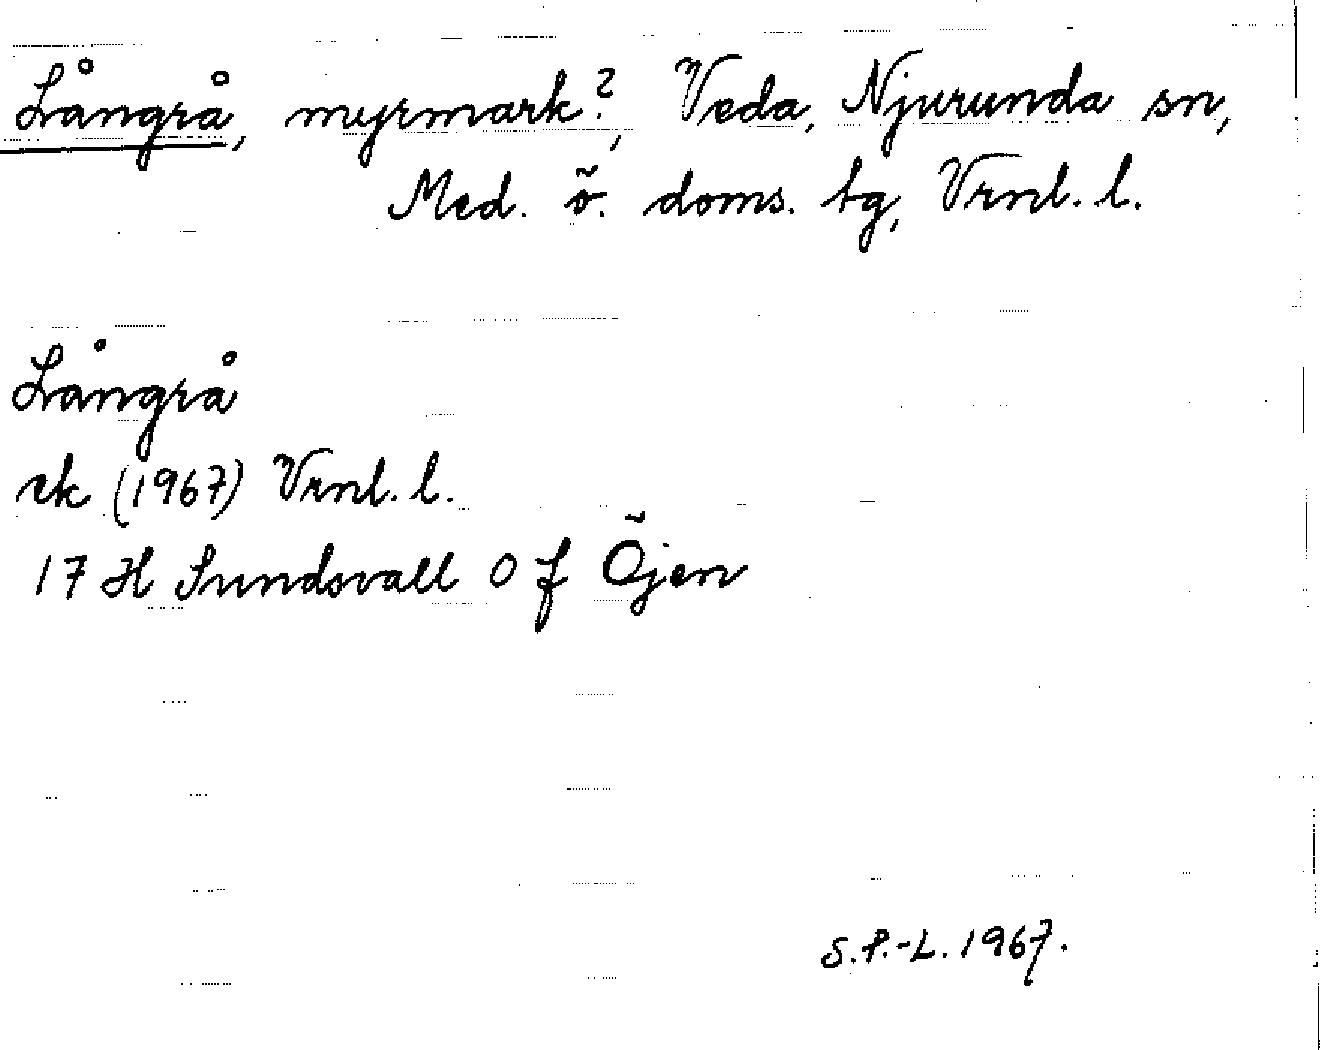 Långrå, myrmark?, Veda, Njurunda sn,
Med. ö. doms. tg, Vrnl. l.
Långrå
rk (1967) Vrnl. l.
17 H Sundsvall 0 f Öjen
S.P.-L. 1967.